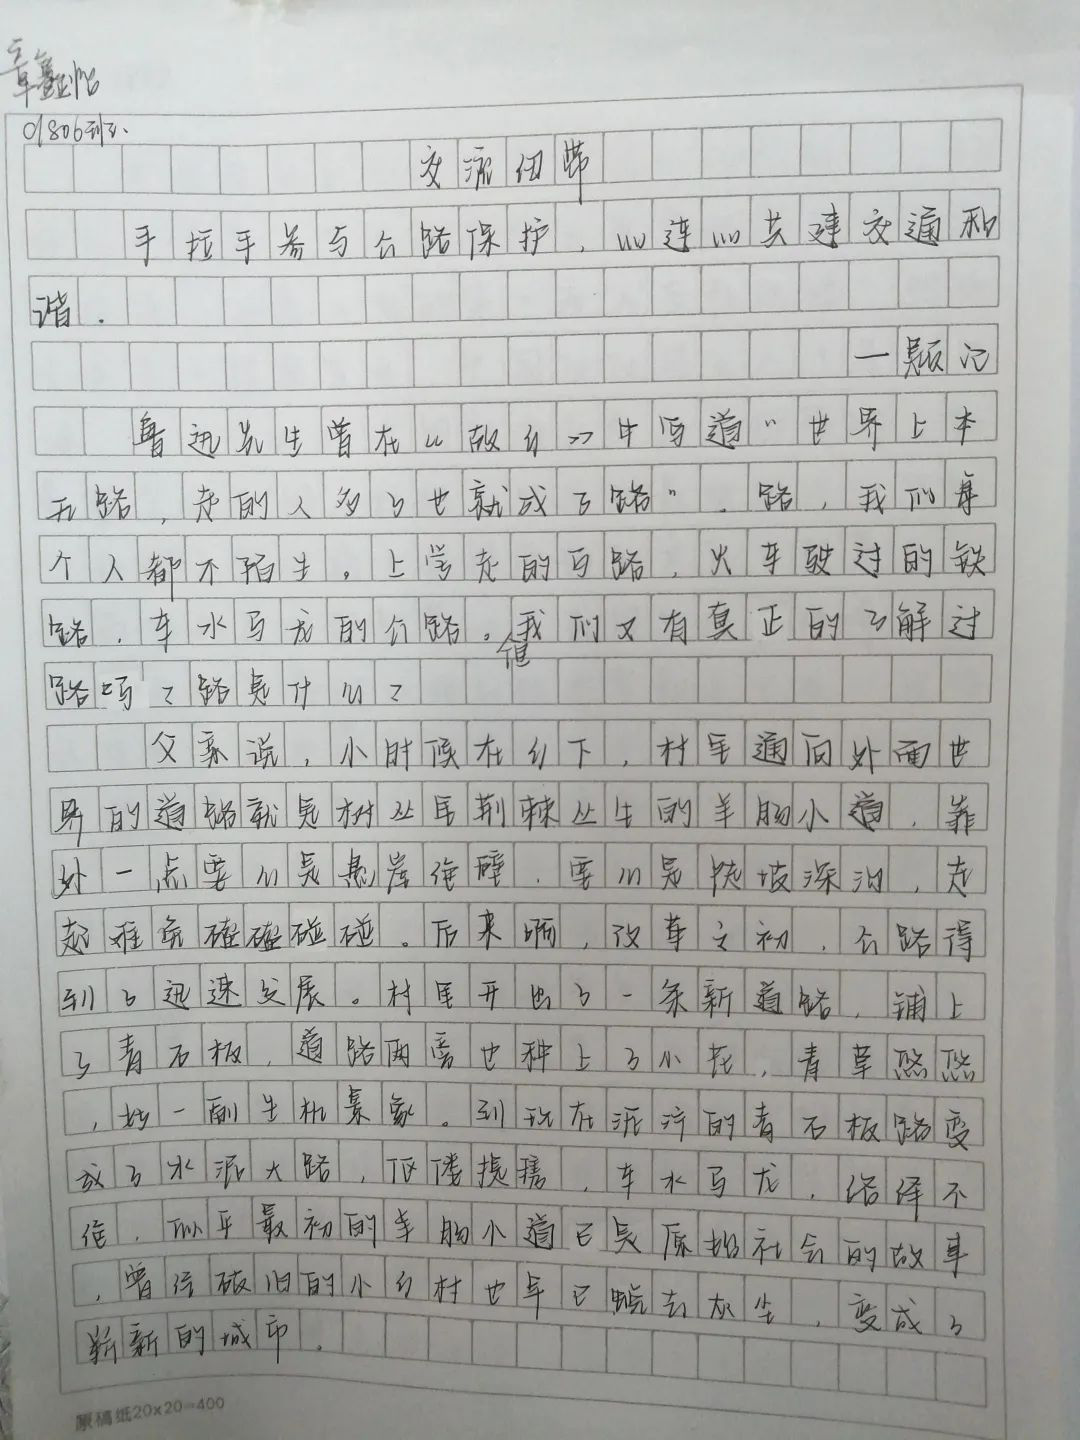 章鑫怡
01806班.
交流纽带
手拉手参与公路保护，心连心共建交通和
谐.
一题记
鲁迅先生曾在《故乡》中写道"世界上本
无路，走的人多了也就成了路"．路，我们每
个人都不陌生，上学走的马路，火车驶过的铁
路，车水马龙的公路。我们又有真正的了解过
值
路吗？路是什么？
父亲说，小时候在乡下，村里通向外面世
界的道路就是树丛里荆棘丛生的羊肠小道，靠
外一点要么是悬崖绝壁，要么是陡坡深沟，走
起难免磕磕碰碰。后来啊，改革之初，公路得
到了迅速发展。村里开出了一条新道路，铺上
了青石板，道路两旁也种上了小花，青草悠悠
，好一副生机景象。到现在泥泞的青石板路变
成了水泥大路，伛偻提携，车水马龙，络绎不
绝，似乎最初的羊肠小道已是原始社会的故事
，曾经破旧的小乡村也早已蜕去灰尘，变成了
崭新的城市．
原稿纸20×20=400